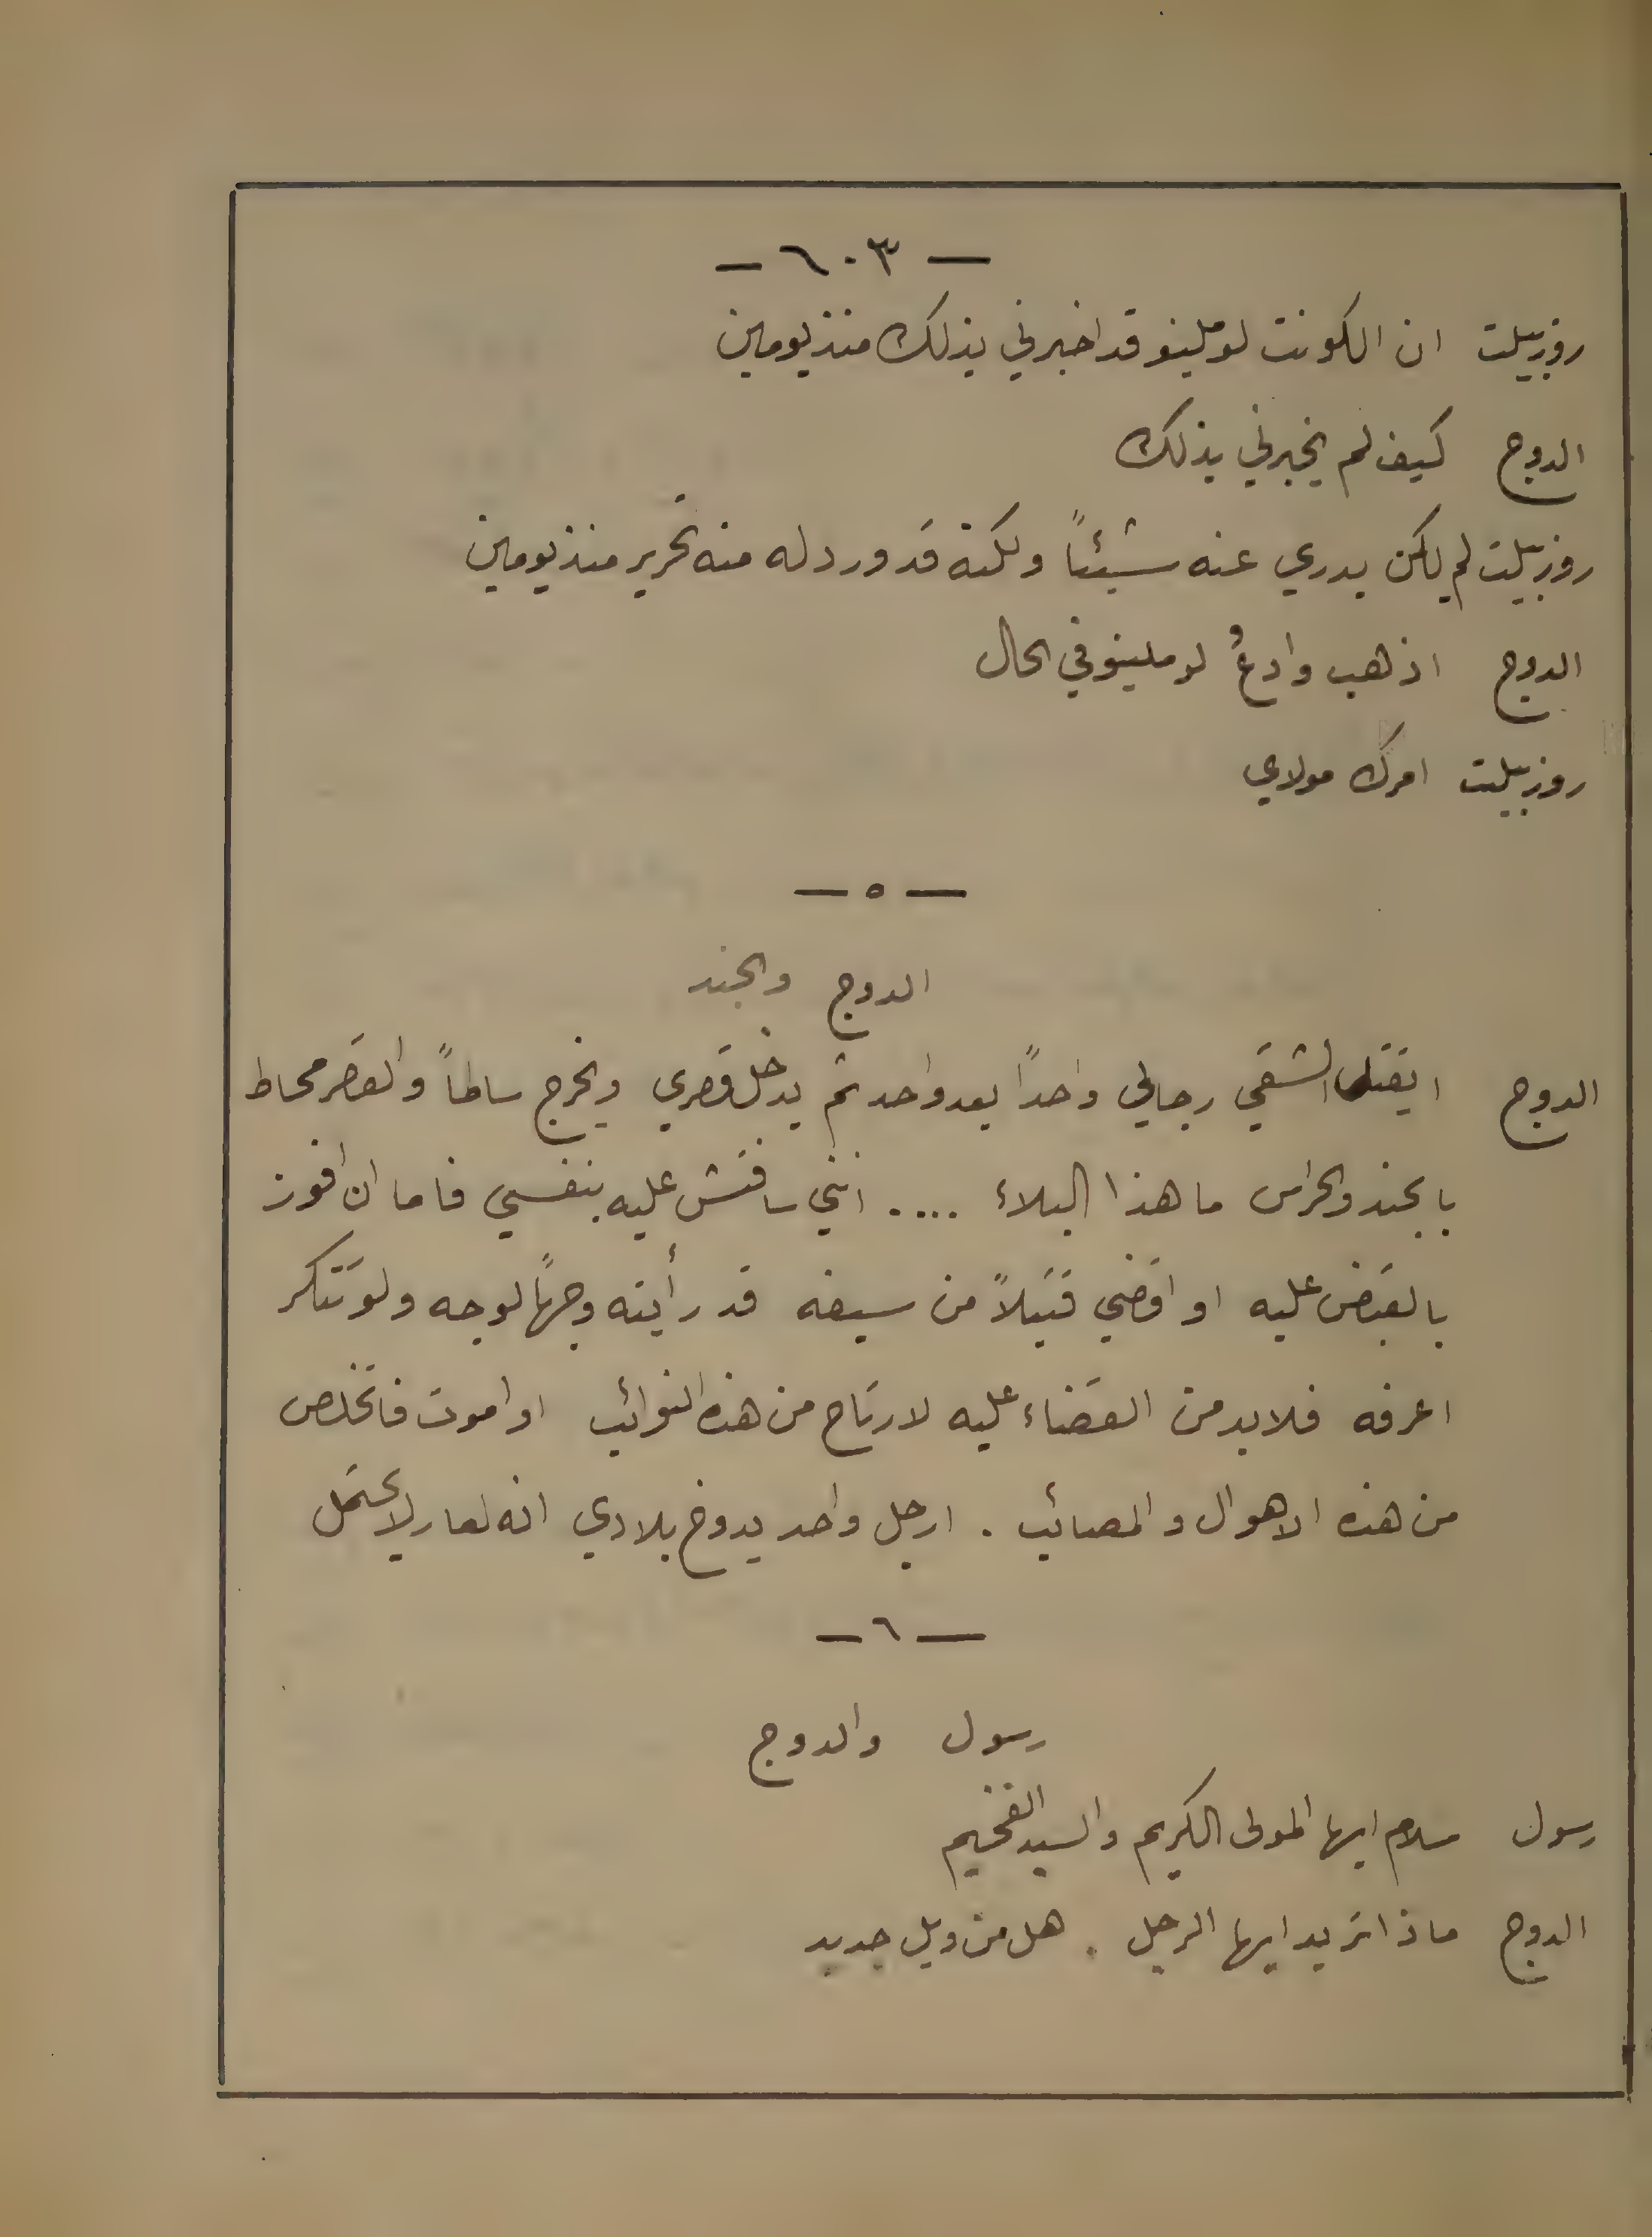 — ٦٠٣ —
روزبيلت ان الكونت لوملينو قد اخبرني بذلك منذ يومين
الدوج كيف لم يخبرني بذلك
روزبيلت لم يكن يدري عنه شيئاً ولكنه قد ورد له منه تحرير منذ يومين
الدوج اذهب وادعُ لوملينو في الحال
روزبيلت امرك مولاي
— ٥ —
الدوج والجند
الدوج ايقتل الشقي رجالي واحداً بعد واحد ثم يدخل قصري ويخرج سالماً والقصر محاط
بالجند والحراس ما هذا البلاء ..... انني سافتش عليه بنفسي فاما ان افوز
بالقبض عليه او اقضي قتيلاً من سيفه قد رأيته وجهاً لوجه ولو تنكر
اعرفه فلا بد من القضاء عليه لارتاح من هذه النوائب او اموت فاتخلص
من هذه الاهوال والمصائب . ارجل واحد يدوخ بلادي انه لعار لا يحتمل
— ٦ —
رسول والدوج
رسول سلام ايها المولى الكريم والسيد الفخيم
الدوج ماذا تريد ايها الرجل . هل من ويل جديد